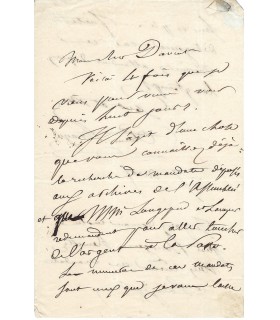 Mon cher Daviot
Voilà 4 fois que je
viens pour vous voir
depuis huit jours.
Il s'agit d'une chose
que vous connaissez déjà,
la recherche de mandats déposés
aux archives de l'Assemblée
et que MM. et
redemandent pour aller toucher
de l'argent à la
Les numéros de ces mandats
sont ceux que j'avais